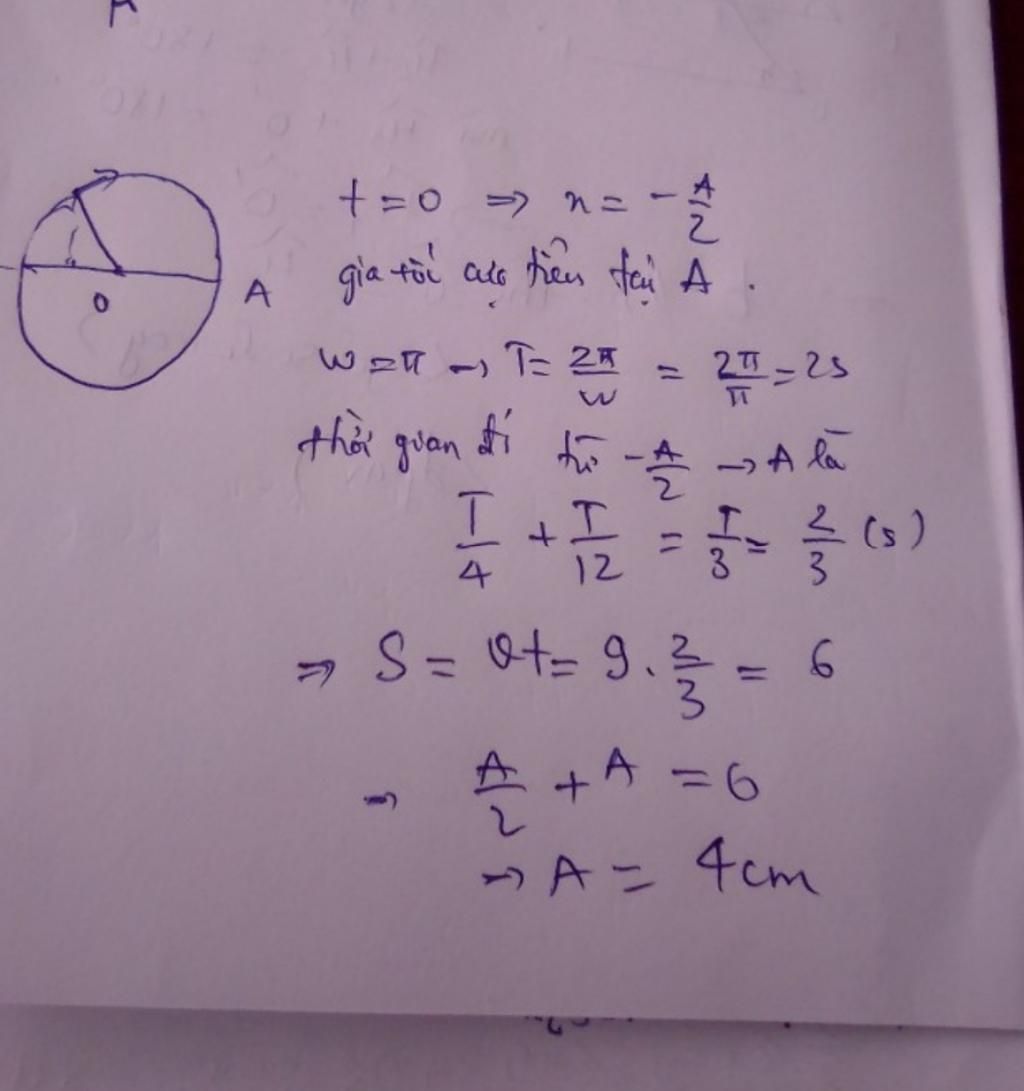 A
t = 0 ⇒ x = - A/2
gia tốc cực tiểu tại A .
A
O
W = π → T = 2π/W = 2π/π = 2s
thời gian đi từ - A/2 → A là
T/4 + T/12 = T/3 = 2/3 (s)
⇒ S = vt = 9 . 2/3 = 6
→ A/2 + A = 6
→ A = 4cm